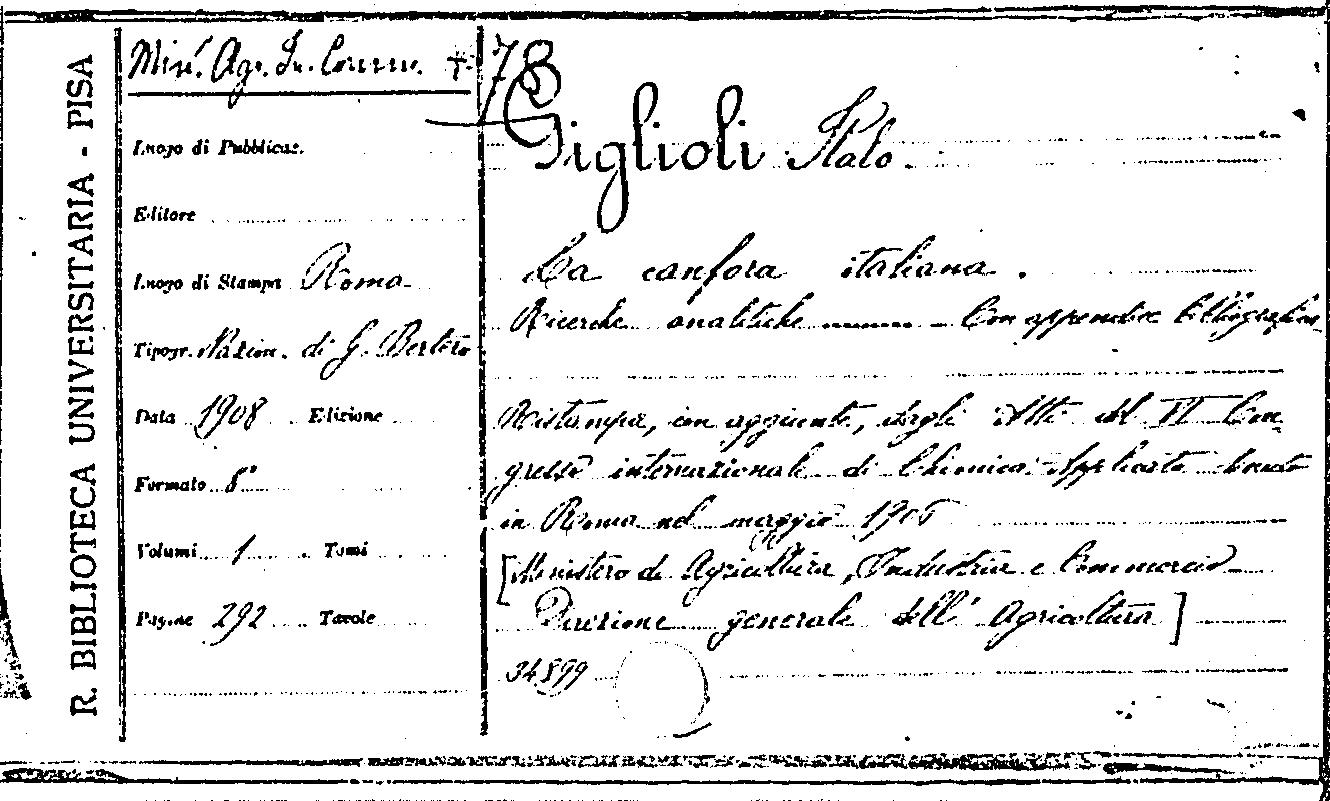 R. BIBLIOTECA UNIVERSITARIA - PISA
Min. Agr. In. Comm. + 78
Luogo di Pubblicaz.
Editore
Luogo di Stampa Roma
Tipogr. Nazion. di G. Bertero
Data 1908 Edizione
Formato 8°
Volumi 1 Tomi
Pagine 292 Tavole
Giglioli Italo.
La canfora italiana.
Ricerche analitiche ......... - Con appendice bibliografica
Ristampa, con aggiunte, dagli Atti del VI Con-
gresso internazionale di Chimica Applicata tenuto
in Roma nel maggio 1906
[Ministero di Agricoltura, Industria e Commercio -
Direzione generale dell' Agricoltura]
34899